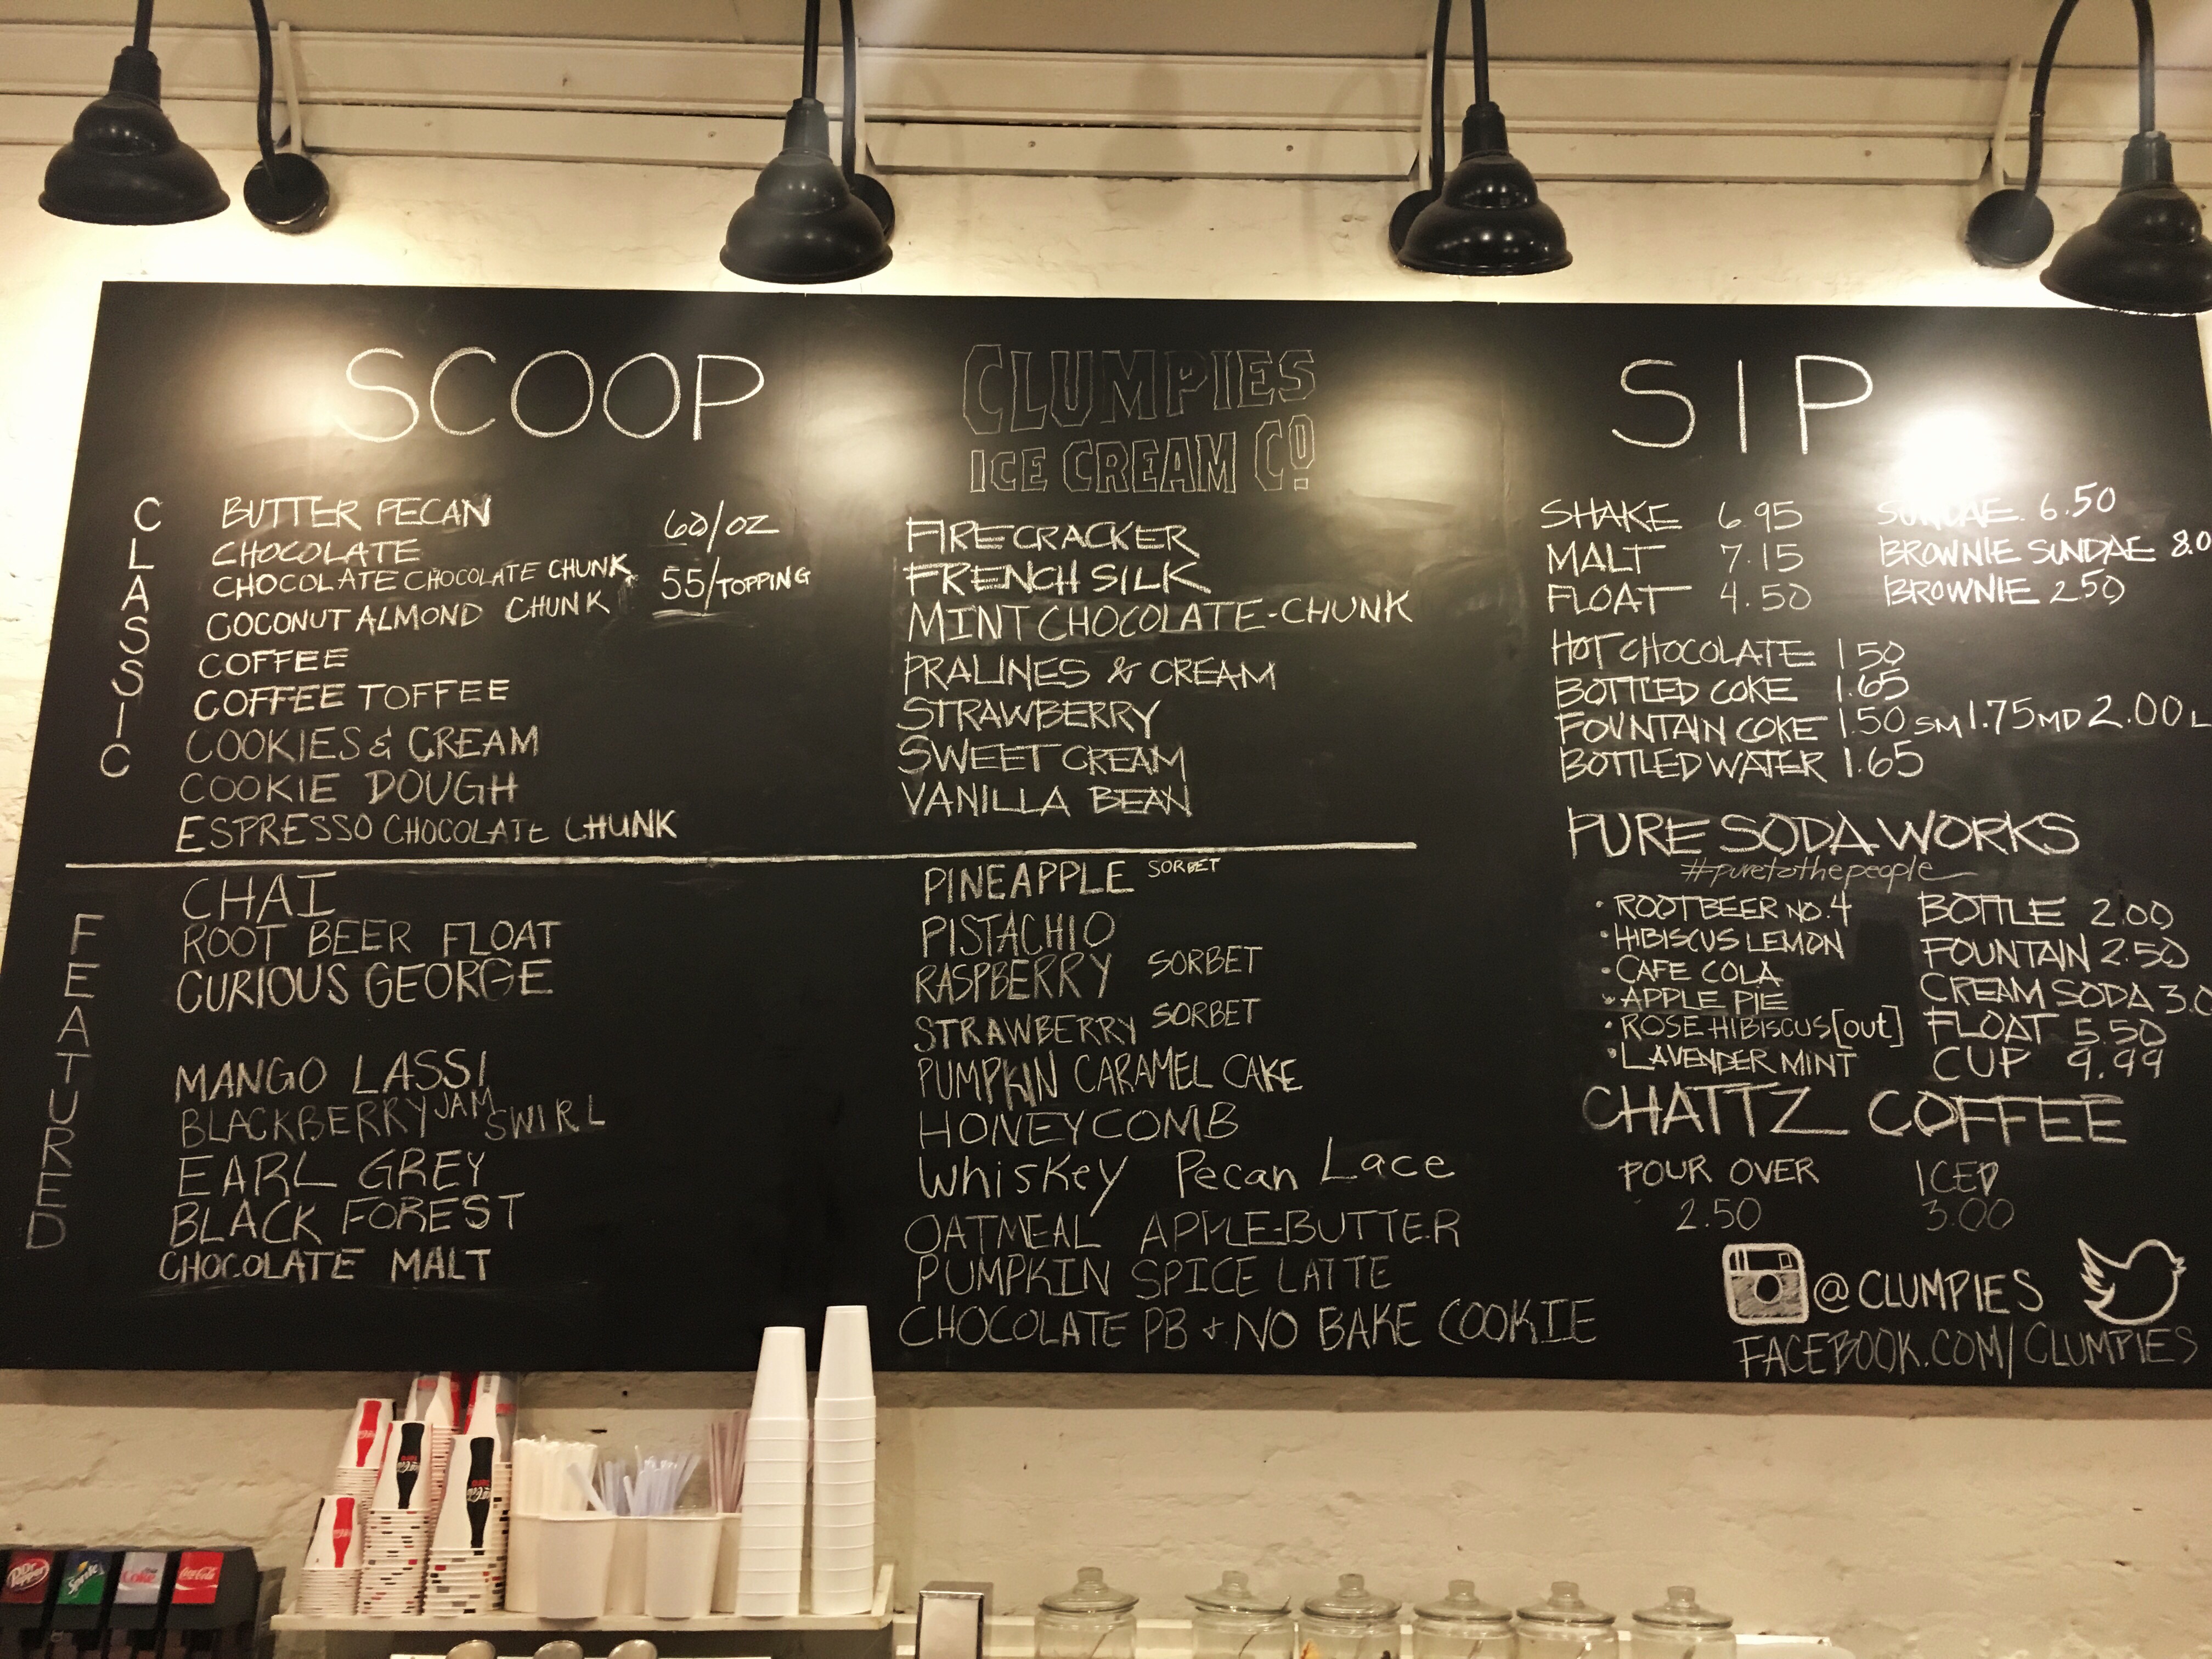 SCOOP
CLUMPIES
ICE CREAM CO
SIP
CLASSIC
BUTTER PECAN
CHOCOLATE
CHOCOLATE CHOCOLATE CHUNK
COCONUT ALMOND CHUNK
COFFEE
COFFEE TOFFEE
COOKIES & CREAM
COOKIE DOUGH
ESPRESSO CHOCOLATE CHUNK
60/OZ
55/TOPPING
FIRECRACKER
FRENCH SILK
MINT CHOCOLATE-CHUNK
PRALINES & CREAM
STRAWBERRY
SWEET CREAM
VANILLA BEAN
FEATURED
CHAI
ROOT BEER FLOAT
CURIOUS GEORGE
MANGO LASSI
BLACKBERRY JAM SWIRL
EARL GREY
BLACK FOREST
CHOCOLATE MALT
PINEAPPLE SORBET
PISTACHIO
RASPBERRY SORBET
STRAWBERRY SORBET
PUMPKIN CARAMEL CAKE
HONEYCOMB
Whiskey Pecan Lace
OATMEAL APPLE-BUTTER
PUMPKIN SPICE LATTE
CHOCOLATE PB + NO BAKE COOKIE
SHAKE 6.95
MALT 7.15
FLOAT 4.50
SUNDAE 6.50
BROWNIE SUNDAE 8.0
BROWNIE 2.50
HOT CHOCOLATE 1 50
BOTTLED COKE 1.65
FOUNTAIN COKE 1.50 SM 1.75 MD 2.00 L
BOTTLED WATER 1.65
PURE SODA WORKS
#puretothepeople
• ROOTBEER NO. 4
• HIBISCUS LEMON
• CAFE COLA
• APPLE PIE
• ROSE HIBISCUS [out]
• LAVENDER MINT
BOTTLE 2.00
FOUNTAIN 2.50
CREAM SODA 3.0
FLOAT 5.50
CUP 9.99
CHATTZ COFFEE
POUR OVER
2.50
ICED
3.00
@CLUMPIES
FACEBOOK.COM/CLUMPIES
Dr Pepper
Sprite
Coke
Coca-Cola